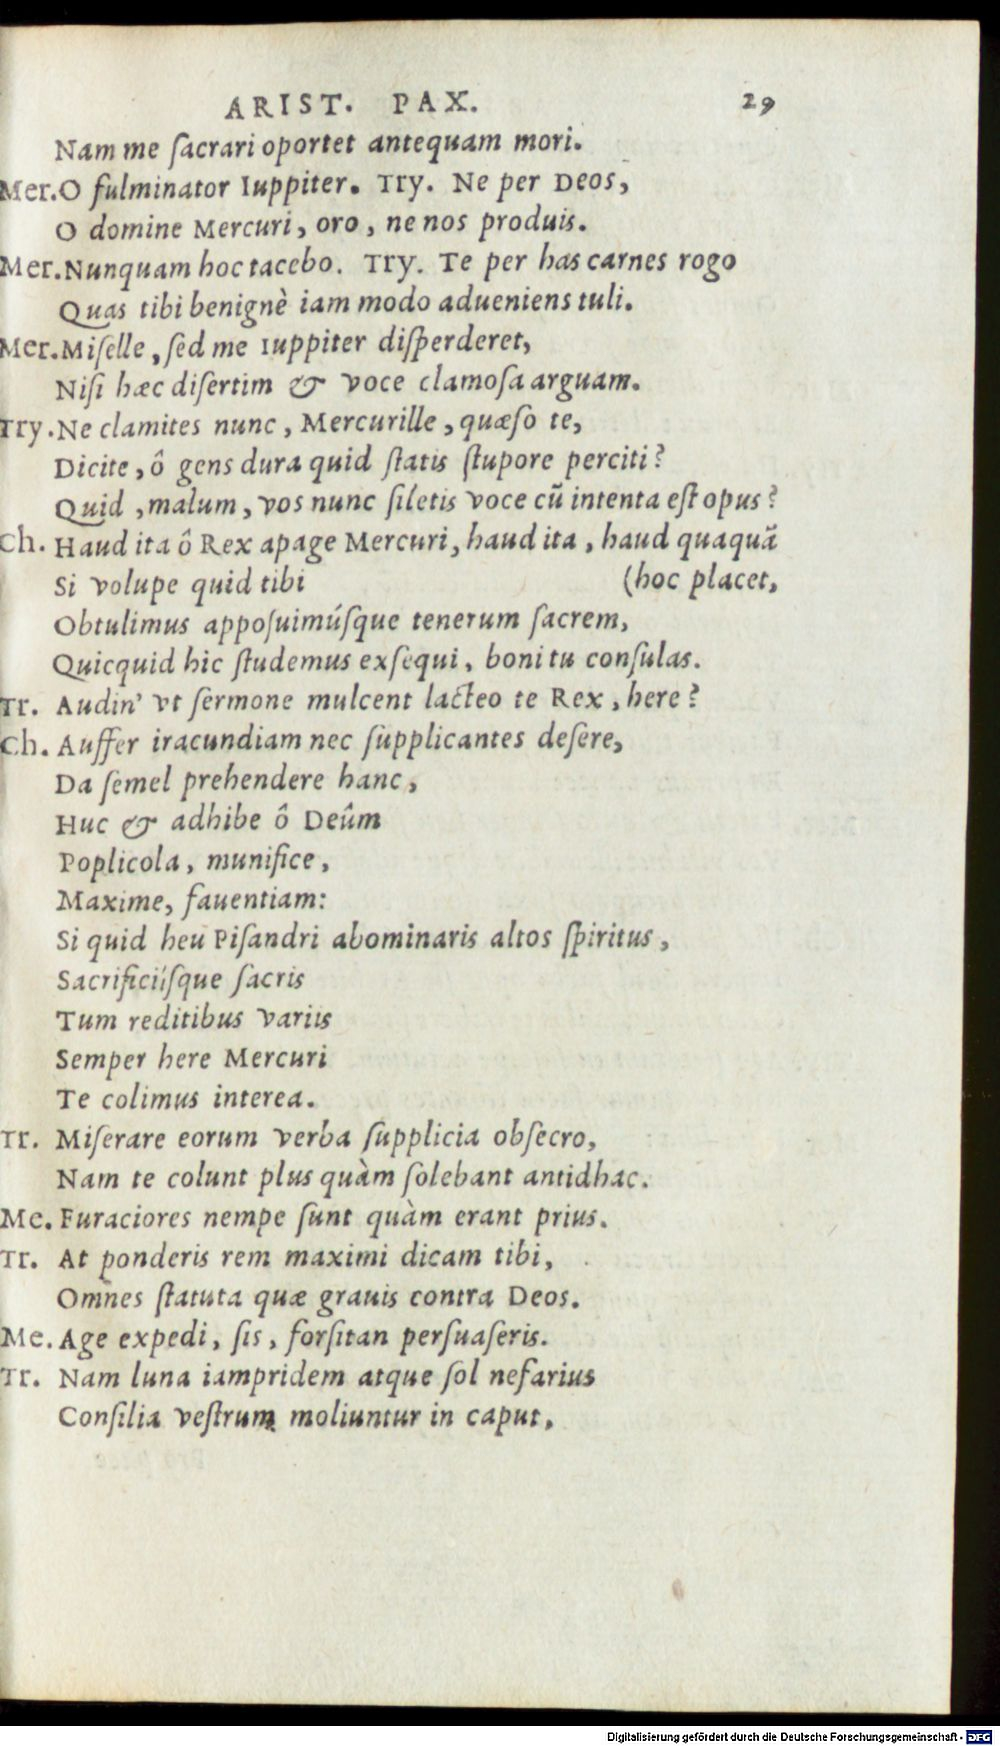 ARIST. PAX. 29
Nam me ſacrari oportet antequam mori.
Mer. O fulminator Iuppiter. Try. Ne per Deos,
O domine Mercuri, oro, ne nos produis.
Mer. Nunquam hoc tacebo. Try. Te per has carnes rogo
Quas tibi benignè iam modo adueniens tuli.
Mer. Miſelle, ſed me Iuppiter diſperderet,
Niſi hæc diſertim & voce clamoſa arguam.
Try. Ne clamites nunc, Mercurille, quæſo te,
Dicite, ô gens dura quid ſtatis ſtupore perciti?
Quid, malum, vos nunc ſiletis voce cũ intenta eſt opus?
Ch. Haud ita ô Rex apage Mercuri, haud ita, haud quaquã
Si volupe quid tibi (hoc placet,
Obtulimus appoſuimúſque tenerum ſacrem,
Quicquid hic ſtudemus exſequi, boni tu conſulas.
Tr. Audin' vt ſermone mulcent lacteo te Rex, here?
Ch. Auffer iracundiam nec ſupplicantes deſere,
Da ſemel prehendere hanc,
Huc & adhibe ô Deûm
Poplicola, munifice,
Maxime, fauentiam:
Si quid heu Piſandri abominaris altos ſpiritus,
Sacrificiíſque ſacris
Tum reditibus variis
Semper here Mercuri
Te colimus interea.
Tr. Miſerare eorum verba ſupplicia obſecro,
Nam te colunt plus quàm ſolebant antidhac.
Me. Furaciores nempe ſunt quàm erant prius.
Tr. At ponderis rem maximi dicam tibi,
Omnes ſtatuta quæ grauis contra Deos.
Me. Age expedi, ſis, forſitan perſuaſeris.
Tr. Nam luna iampridem atque ſol nefarius
Conſilia veſtrum moliuntur in caput,
Digitalisierung gefördert durch die Deutsche Forschungsgemeinschaft - DFG